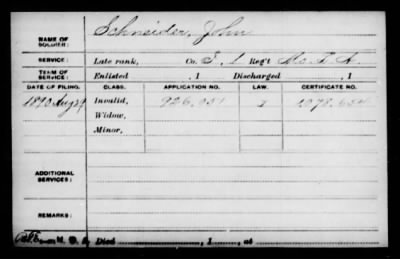 NAME OF SOLDIER: Schneider, John
SERVICE: Late rank, Co. E, 1 Reg't Mo. L. A.
TERM OF SERVICE: Enlisted , 1 Discharged , 1
DATE OF FILING. CLASS. APPLICATION NO. LAW. CERTIFICATE NO.
1890 Aug 29 Invalid, 926.051
Widow,
Minor,
ADDITIONAL SERVICES:
REMARKS:
Died , 1 , at